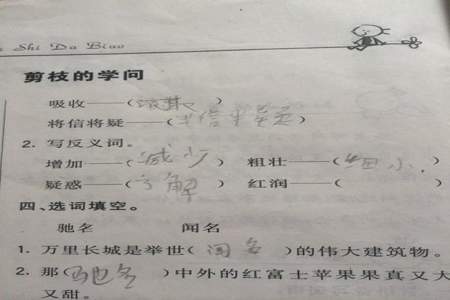 Shi Da Biao
剪枝的学问
吸收——(吸取)
将信将疑——(半信半疑)
2. 写反义词。
增加——(减少) 粗壮——(细小)
疑惑——(了解) 红润——( )
四、选词填空。
驰名 闻名
1. 万里长城是举世(闻名)的伟大建筑物。
2. 那(驰名)中外的红富士苹果果真又大
又甜。